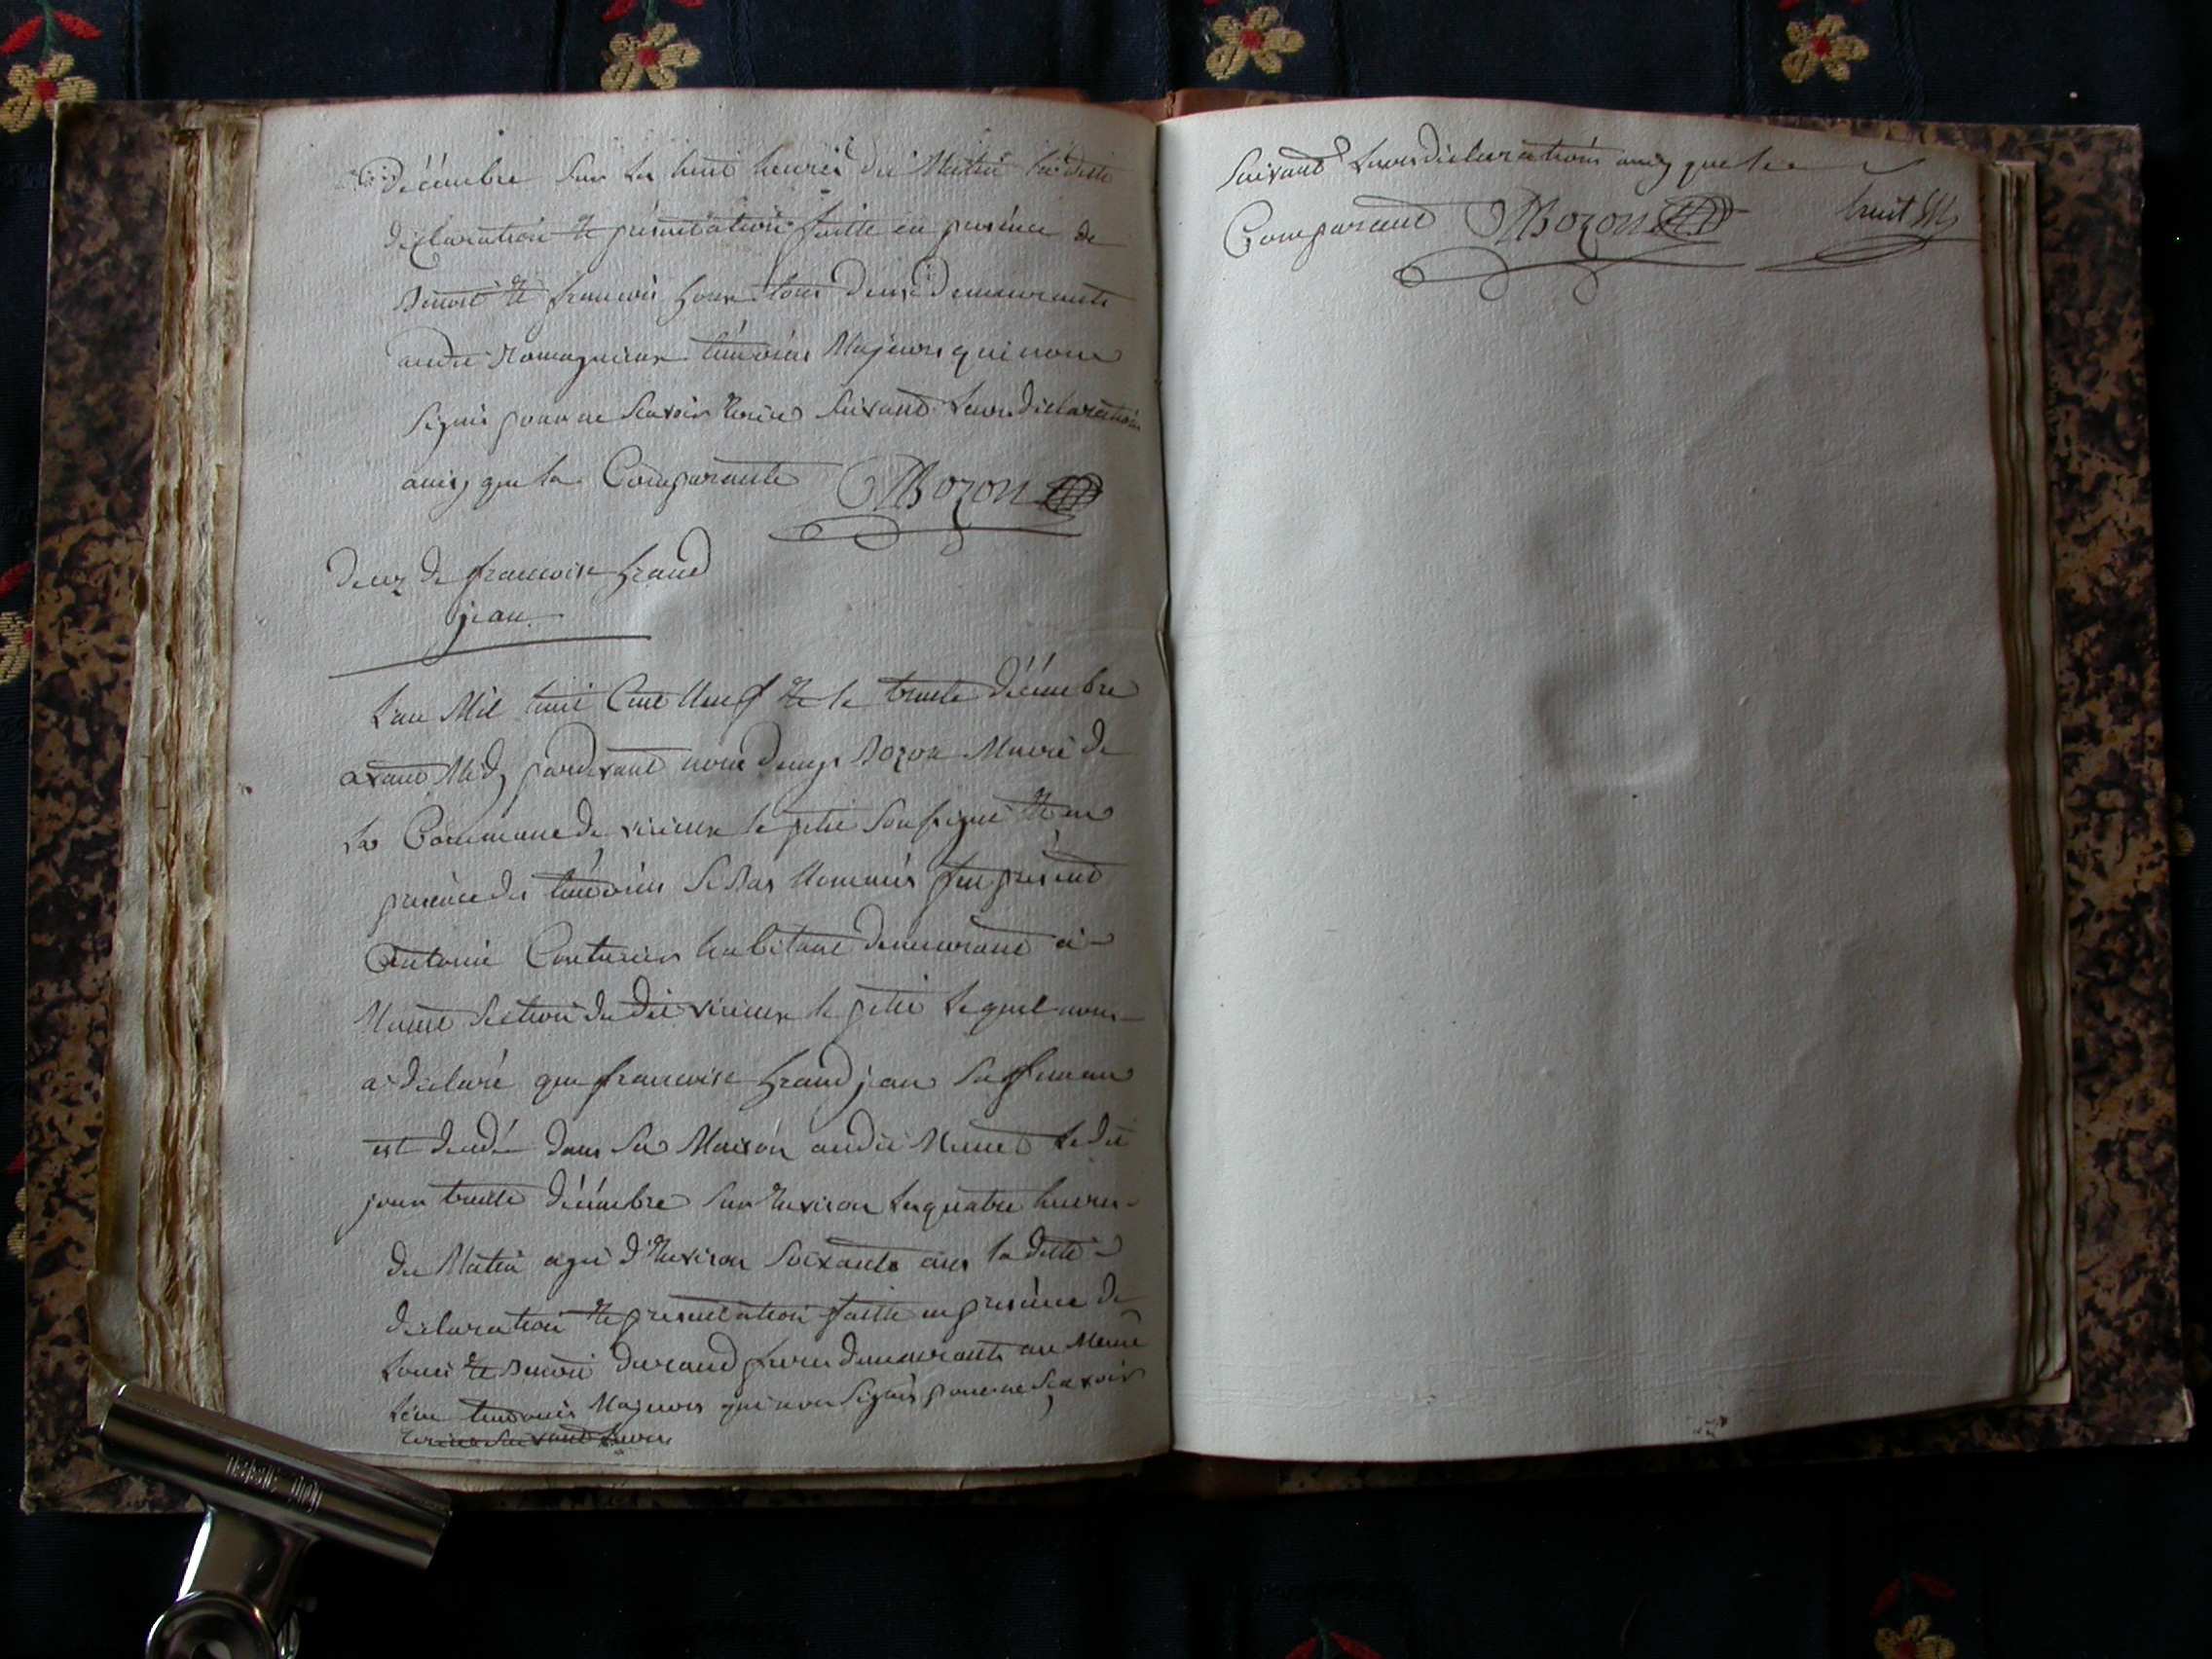 décembre sur les huit heures du Matin la ditte
déclaration et présentation faitte en présence de
Benoit et francois tous deux demeurants
audit Romagnieux témoins Majeurs qui nont
signés pour ne scavoir Écrire suivant leur déclaration
ainsy que la Comparante Bozon
Decez de francoise Grand
jean
L'an Mil huit Cent Neuf et le trente décembre
avant Midy pardevant nous Bozon Maire de
la Commune de virieux le petit soussigné et en
présence des témoins si bas Nommés fut présent
Antoine Couturier habitant demeurant à
Munet section du dit virieux le petit lequel nous
a déclaré que francoise Grand jean sa femme
est décédé dans sa Maison audit Munet le dit
jour trente décembre sur Environ les quatre heures
du Matin agée d'Environ soixante ans la ditte
déclaration et présentation faitte en présence de
Louis et Benoit durand frères demeurants au Meme
lieu témoins Majeurs qui nont signés pour ne scavoir
Écrire suivant leurs
suivant leurs déclarations ainsy que le
Comparant Bozon